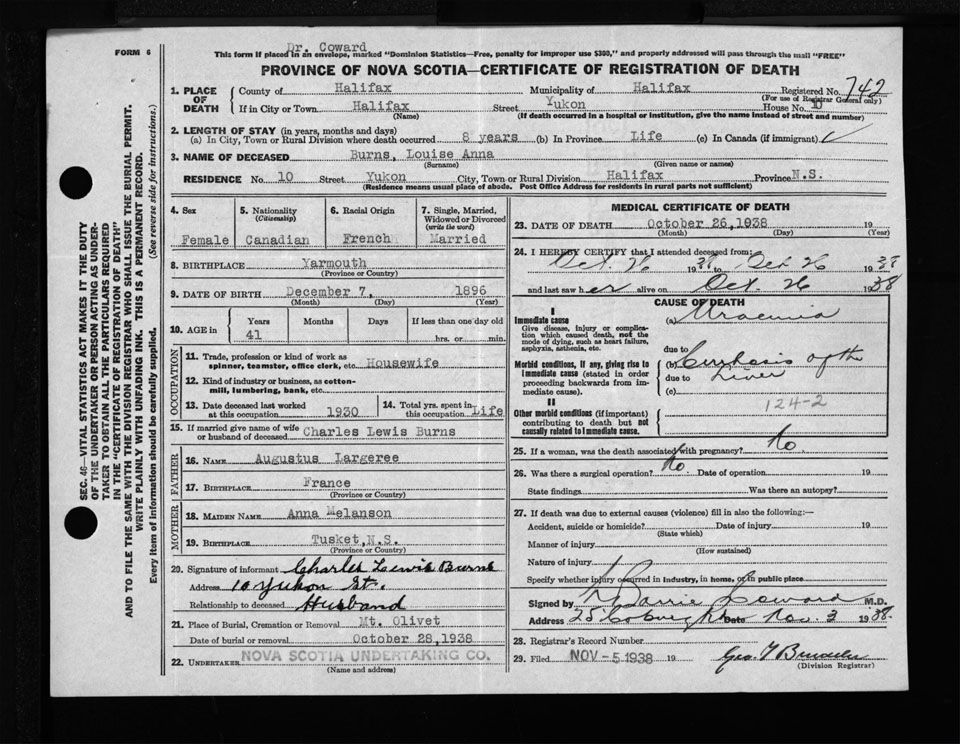 Dr. Coward
FORM 6
This form if placed in an envelope, marked "Dominion Statistics—Free, penalty for improper use $300," and properly addressed will pass through the mail "FREE"
PROVINCE OF NOVA SCOTIA—CERTIFICATE OF REGISTRATION OF DEATH
SEC. 46—VITAL STATISTICS ACT MAKES IT THE DUTY
OF THE UNDERTAKER OR PERSON ACTING AS UNDER-
TAKER TO OBTAIN ALL THE PARTICULARS REQUIRED
IN THE "CERTIFICATE OF REGISTRATION OF DEATH"
AND TO FILE THE SAME WITH THE DIVISION REGISTRAR WHO SHALL ISSUE THE BURIAL PERMIT.
WRITE PLAINLY WITH UNFADING INK. THIS IS A PERMANENT RECORD.
Every item of information should be carefully supplied. (See reverse side for instructions.)
1. PLACE OF DEATH
County of Halifax Municipality of Halifax Registered No. 742
(For use of Registrar General only)
If in City or Town Halifax Street Yukon House No. 10
(Name) (If death occurred in a hospital or institution, give the name instead of street and number)
2. LENGTH OF STAY (in years, months and days)
(a) In City, Town or Rural Division where death occurred 8 years (b) In Province Life (c) In Canada (if immigrant)
3. NAME OF DECEASED Burns, Louise Anna
(Surname) (Given name or names)
RESIDENCE No. 10 Street Yukon City, Town or Rural Division Halifax Province N.S.
(Residence means usual place of abode. Post Office Address for residents in rural parts not sufficient)
4. Sex Female
5. Nationality (Citizenship) Canadian
6. Racial Origin French
7. Single, Married, Widowed or Divorced (write the word) Married
8. BIRTHPLACE Yarmouth
(Province or Country)
9. DATE OF BIRTH December 7, 1896
(Month) (Day) (Year)
10. AGE in Years 41 Months Days If less than one day old hrs. or min.
OCCUPATION
11. Trade, profession or kind of work as spinner, teamster, office clerk, etc. Housewife
12. Kind of industry or business, as cotton-mill, lumbering, bank, etc.
13. Date deceased last worked at this occupation 1930
14. Total yrs. spent in this occupation Life
15. If married give name of wife or husband of deceased Charles Lewis Burns
FATHER
16. NAME Augustus Largeree
17. BIRTHPLACE France
(Province or Country)
MOTHER
18. MAIDEN NAME Anna Melanson
19. BIRTHPLACE Tusket, N.S.
(Province or Country)
20. Signature of informant Charles Lewis Burns
Address 10 Yukon St.
Relationship to deceased Husband
21. Place of Burial, Cremation or Removal Mt. Olivet
Date of burial or removal October 28, 1938
22. UNDERTAKER NOVA SCOTIA UNDERTAKING CO.
(Name and address)
MEDICAL CERTIFICATE OF DEATH
23. DATE OF DEATH October 26, 1938 19
(Month) (Day) (Year)
24. I HEREBY CERTIFY that I attended deceased from:
Oct. 26 1938 to Oct 26 1938
and last saw her alive on Oct. 26 1938
CAUSE OF DEATH
I
Immediate cause
Give disease, injury or complication which caused death, not the mode of dying, such as heart failure, asphyxia, asthenia, etc.
(a) Uraemia
due to
Morbid conditions, if any, giving rise to immediate cause (stated in order proceeding backwards from immediate cause).
(b) Cirrhosis of the
due to Liver
(c)
124-2
II
Other morbid conditions (if important) contributing to death but not causally related to immediate cause.
25. If a woman, was the death associated with pregnancy? No
26. Was there a surgical operation? No Date of operation 19
State findings Was there an autopsy?
27. If death was due to external causes (violence) fill in also the following:—
Accident, suicide or homicide? Date of injury 19
(State which)
Manner of injury
(How sustained)
Nature of injury
Specify whether injury occurred in industry, in home, or in public place
Signed by Coward M.D.
Address 25 Date Nov. 3 1938.
28. Registrar's Record Number
29. Filed NOV -5 1938 19
(Division Registrar)